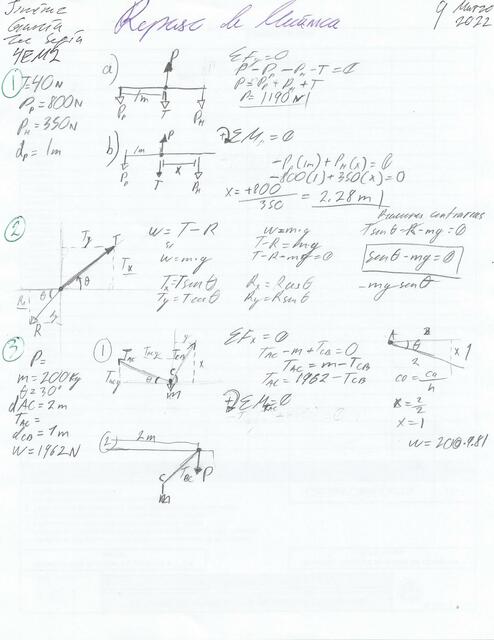 Jimena
García
4EM2
Repaso de
9 Marzo
2022
①
T=40N
Pp=800N
PH=350N
dp=1m
a)
P
1m
Pp
T
PH
ΣFy=0
P-Pp-PH-T=0
P=Pp+PH+T
P=1190N
b)
P
1m
x
Pp
T
PH
ΣMp=0
-Pp(1m)+PH(x)=0
-800(1)+350(x)=0
x=+800/350=2.28m
②
Ty
T
Tx
θ
θ
R
w=T-R
si
w=m·g
Tx=Tsenθ
Ty=Tcosθ
w=m·g
T-R=mg
T-R-mg=0
Rx=Rcosθ
Ry=Rsenθ
Tsenθ-R-mg=0
senθ-mg=0
-mg senθ
③
P=
m=200kg
θ=30°
dAC=2m
TAC=
dCB=1m
w=1962N
①
TAC
TACy
TCB
x
θ
C
m
ΣFx=0
TAC-m+TCB=0
TAC=m-TCB
TAC=1962-TCB
A
B
θ
x
1
2
co=ca/h
x=2/2
x=1
w=200·9.81
②
2m
C
TBC
P
m